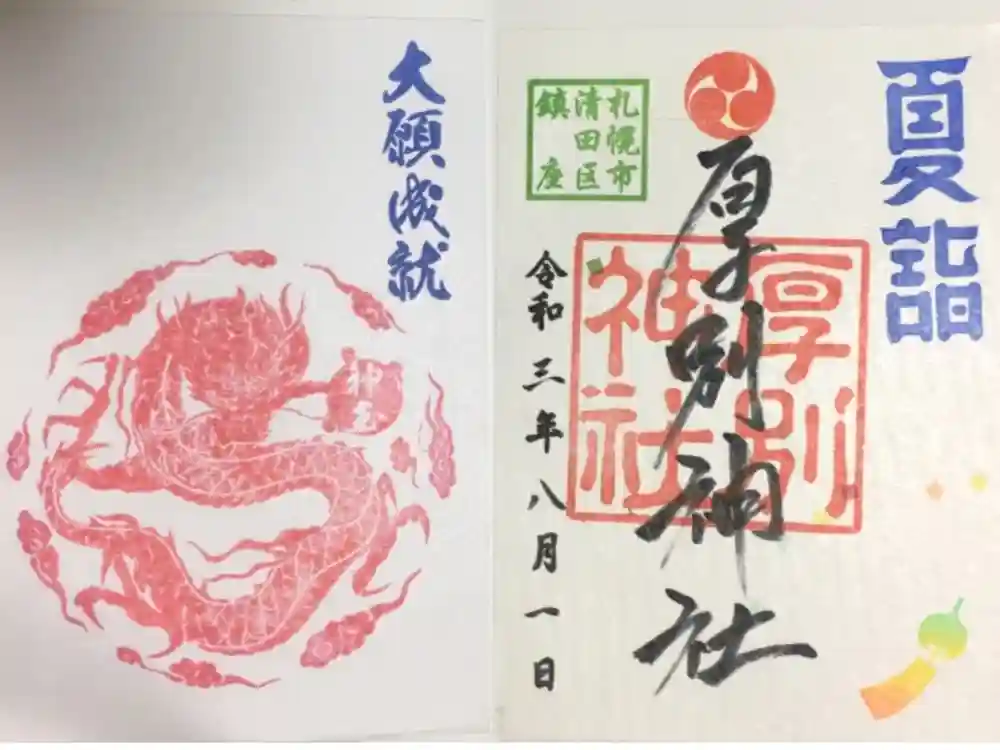 大願成就
夏詣
厚別神社
厚別
神社
札幌市
清田区
鎮座
令和三年八月一日